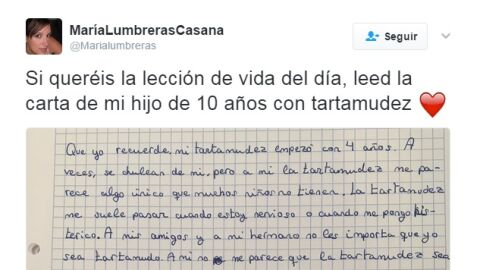 MaríaLumbrerasCasana
@Marialumbreras
Seguir
Si queréis la lección de vida del día, leed la
carta de mi hijo de 10 años con tartamudez
Que yo recuerde, mi tartamudez empezó con 4 años. A
veces, se chulean de mi, pero a mi la tartamudez me pa-
rece algo único que muchos niños no tienen. La tartamudez
me suele pasar cuando estoy nervioso o cuando me pongo his-
terico. A mis amigos y a mi hermano no les importa que yo
sea tartamudo. A mi no me parece que la tartamudez sea